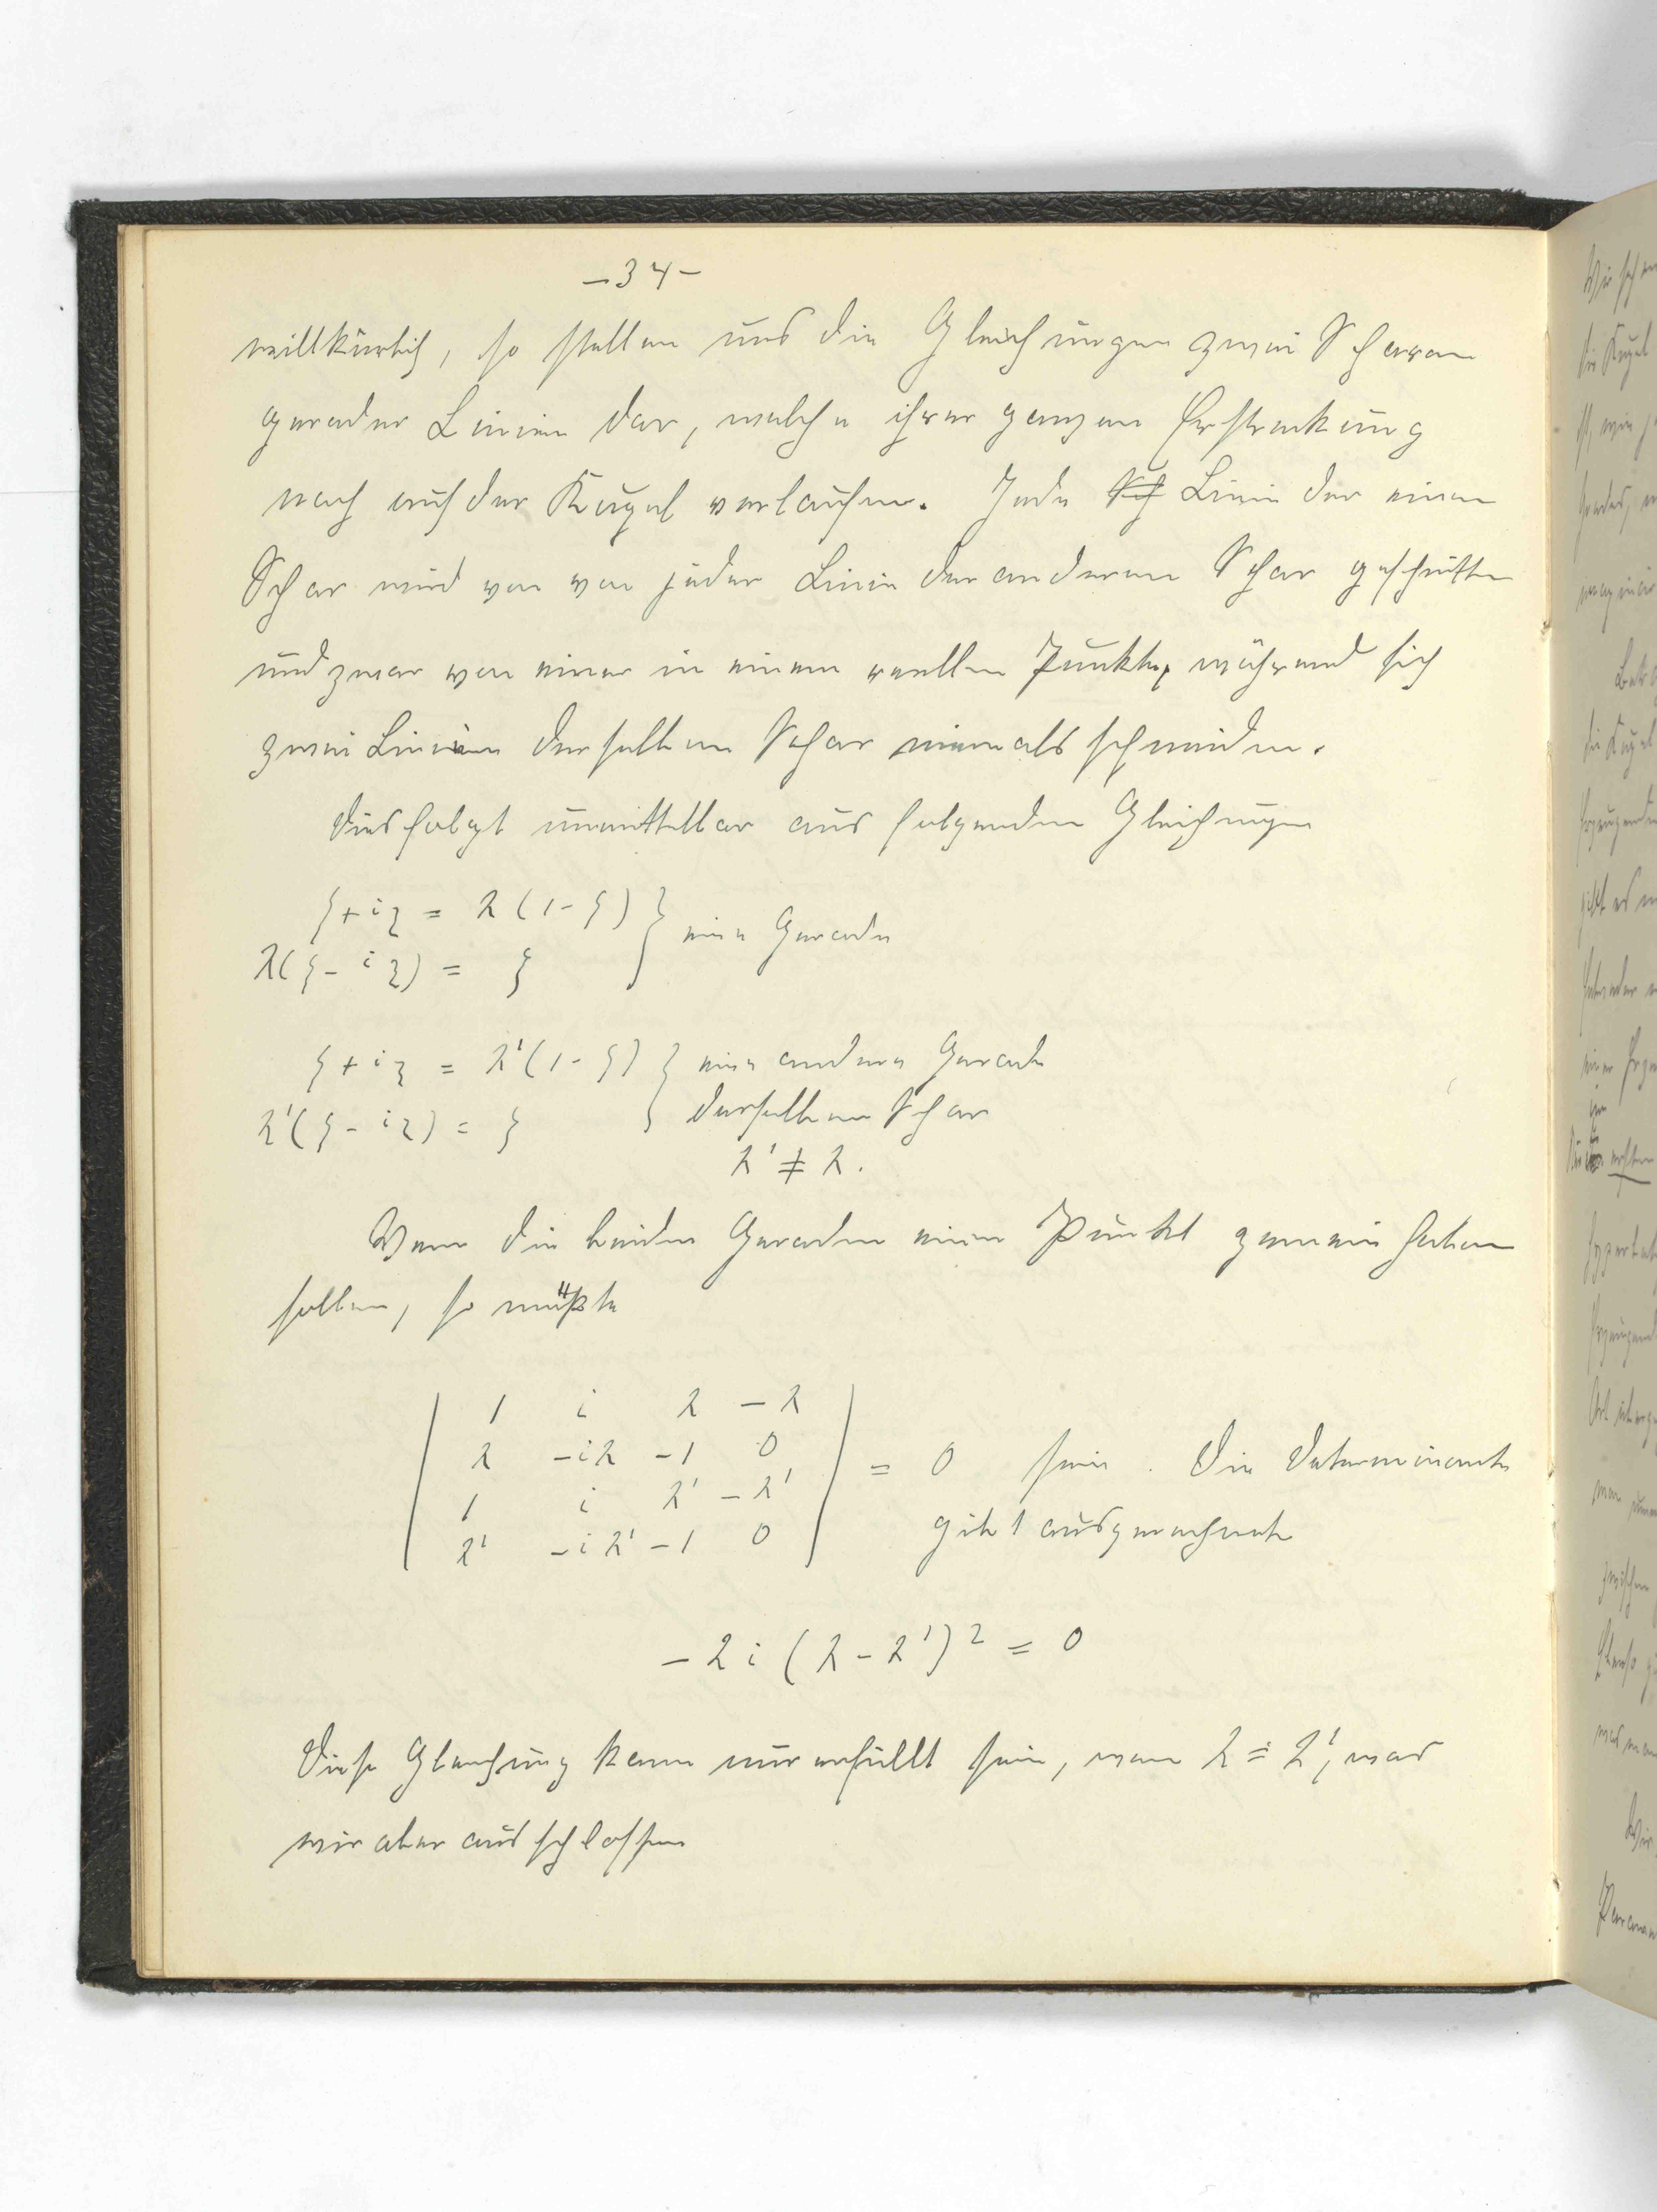 -34-
willkürlich, so stellen uns die Gleichungen zwei Scharen
gerader Linien dar, welche ihrer ganzen Erstreckung
nach auf der Kugel verlaufen. Jede Linie der einen
Schar wird von von jeder Linie der anderen Schar geschnitten
und zwar von einer in einem reellen Punkte, während sich
zwei Linien derselben Schar niemals schneiden.
Dies folgt unmittelbar aus folgenden Gleichungen
ξ + iη = λ(1 - ζ) } eine Gerade
λ(ξ - iη) = ζ
ξ + iη = λ'(1 - ζ) } eine andere Gerade
λ'(ξ - iη) = ζ } derselben Schar
λ' ≠ λ.
Wenn die beiden Geraden einen Punkt gemein haben
sollen, so müßte
| 1 i λ -λ |
| λ -iλ -1 0 | = 0 sein. Die Determinante
| 1 i λ' -λ' |
| λ' -iλ' -1 0 | gibt ausgerechnet
-2i(λ - λ')² = 0
Diese Gleichung kann nur erfüllt sein, wenn λ = λ', was
wir aber ausschlossen